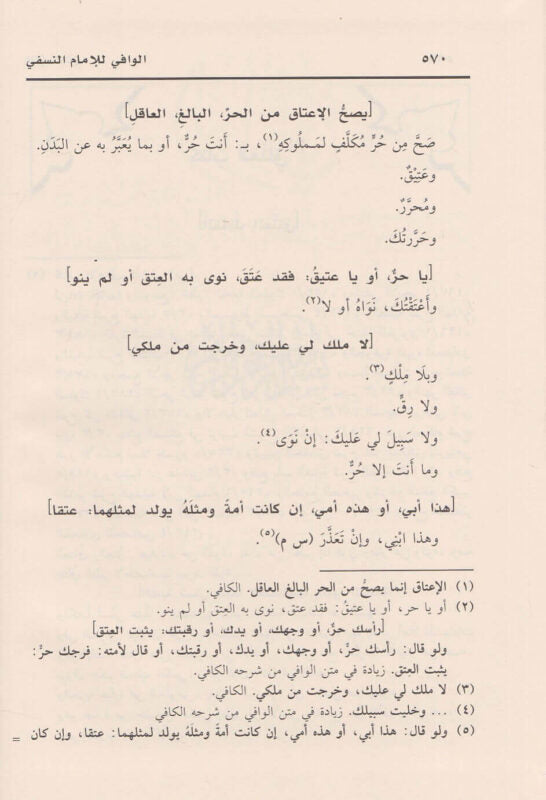 ٥٧٠ الوافي للإمام النسفي
[يصحُّ الإعتاق من الحرِّ، البالغِ، العاقلِ]
صَحَّ مِن حُرٍّ مُكَلَّفٍ لمَـملُوكِهِ(١)، بـ: أَنتَ حُرٌّ، أو بما يُعَبَّرُ به عن البَدَنِ.
وعَتِيْقٌ.
ومُحرَّرٌ.
وحَرَّرتُكَ.
[يا حرُّ، أو يا عتيقُ: فقد عَتَقَ، نوى به العِتق أو لم ينوِ]
وأَعْتَقْتُكَ، نَوَاهُ أو لا(٢).
[لا ملك لي عليك، وخرجت من ملكي]
وبلَا مِلْكٍ(٣).
ولا رِقٍّ.
ولا سَبِيلَ لي عَليكَ: إنْ نَوَى(٤).
وما أَنتَ إلا حُرٌّ.
[هذا أبي، أو هذه أمي، إن كانت أمةً ومثلَهُ يولد لمثلهما: عتقا]
وهذا ابْنِي، وإنْ تَعَذَّرَ (س م)(٥).
(١) الإعتاق إنما يصحُّ من الحر البالغ العاقل. الكافي.
(٢) أو يا حر، أو يا عتيقُ: فقد عتق، نوى به العِتق أو لم ينو.
[رأسك حرٌّ، أو وجهك، أو يدك، أو رقبتك: يثبت العِتق]
ولو قال: رأسك حرٌّ، أو وجهك، أو يدك، أو رقبتك، أو قال لأمته: فرجك حرٌّ:
يثبت العِتق. زيادة في متن الوافي من شرحه الكافي.
(٣) لا ملك لي عليك، وخرجت من ملكي. الكافي.
(٤) ... وخليت سبيلك. زيادة في متن الوافي من شرحه الكافي
(٥) ولو قال: هذا أبي، أو هذه أمي، إن كانت أمةً ومثلَهُ يولد لمثلهما: عتقا، وإن كان =